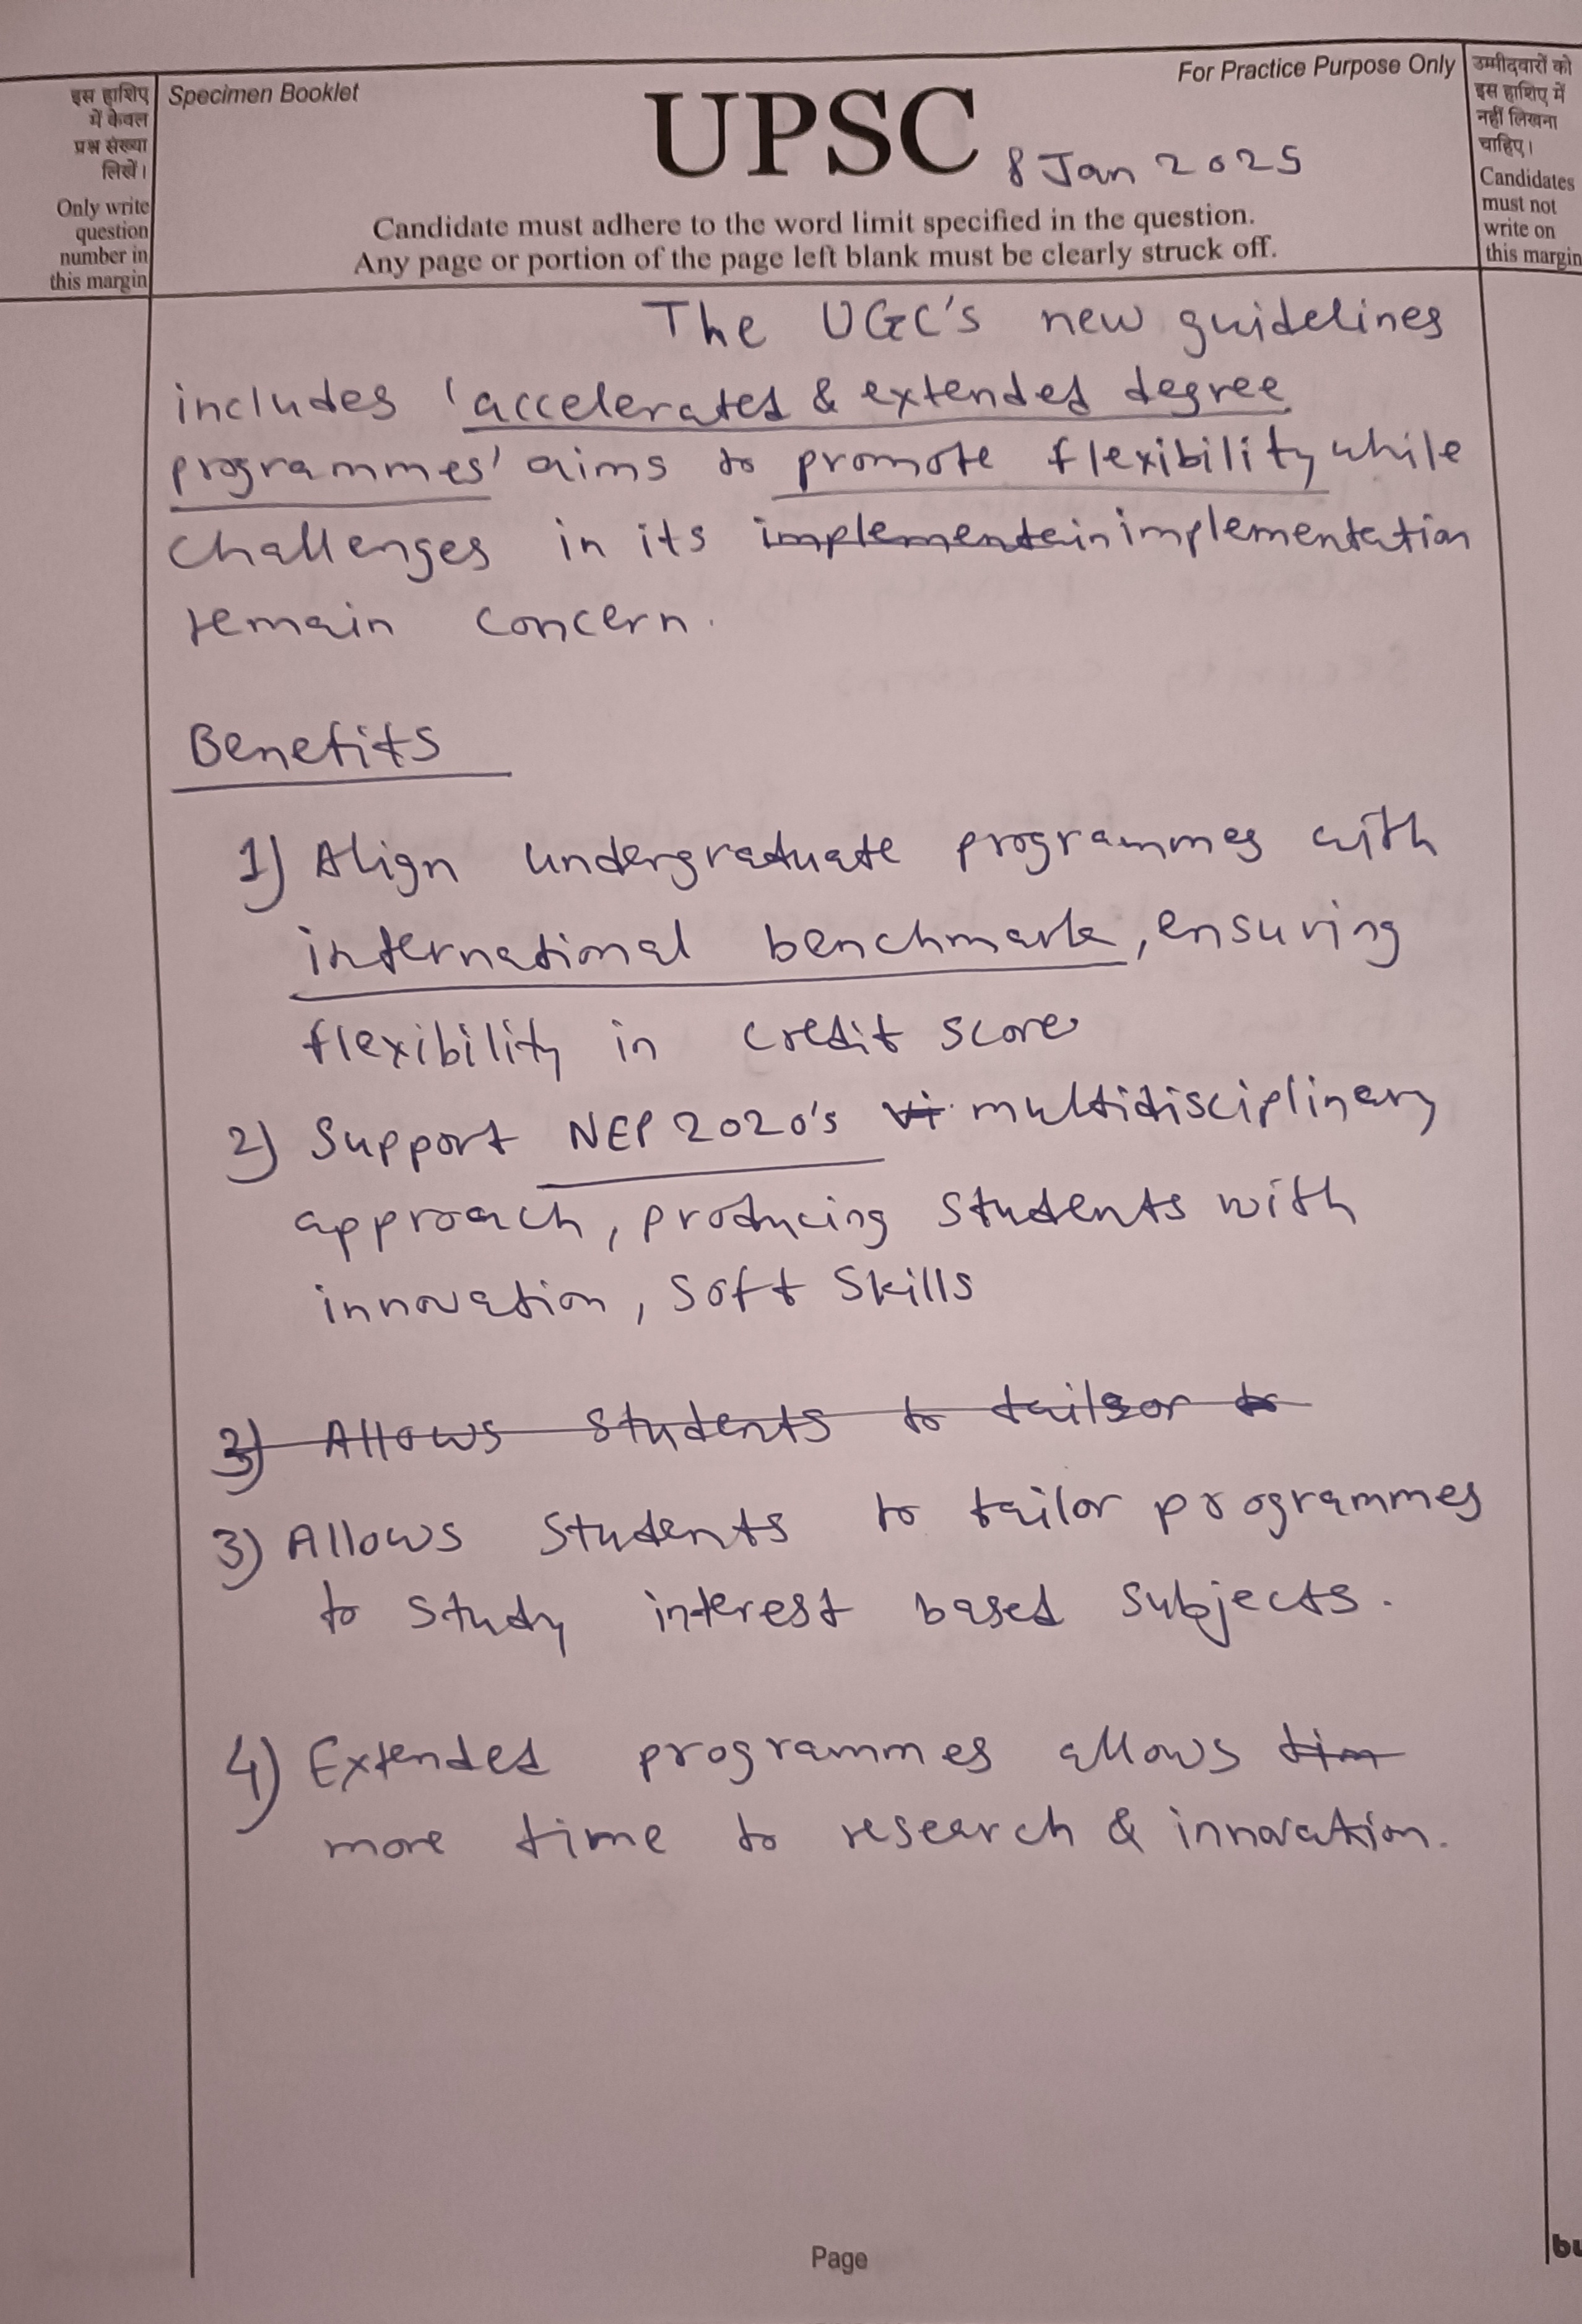 इस हाशिए
में केवल
प्रश्न संख्या
लिखें।
Only write
question
number in
this margin
Specimen Booklet
For Practice Purpose Only
UPSC
8 Jan 2025
Candidate must adhere to the word limit specified in the question.
Any page or portion of the page left blank must be clearly struck off.
उम्मीदवारों को
इस हाशिए में
नहीं लिखना
चाहिए।
Candidates
must not
write on
this margin
The UGC's new guidelines
includes 'accelerated & extended degree
programmes' aims to promote flexibility while
challenges in its implementation
remain concern.
Benefits
1) Align undergraduate programmes with
international benchmark, ensuring
flexibility in credit score
2) Support NEP 2020's vi multidisciplinary
approach, producing students with
innovation, soft skills
3) Allows students to tailor to
3) Allows students to tailor programmes
to study interest based subjects.
4) Extended programmes allows tim
more time to research & innovation.
Page